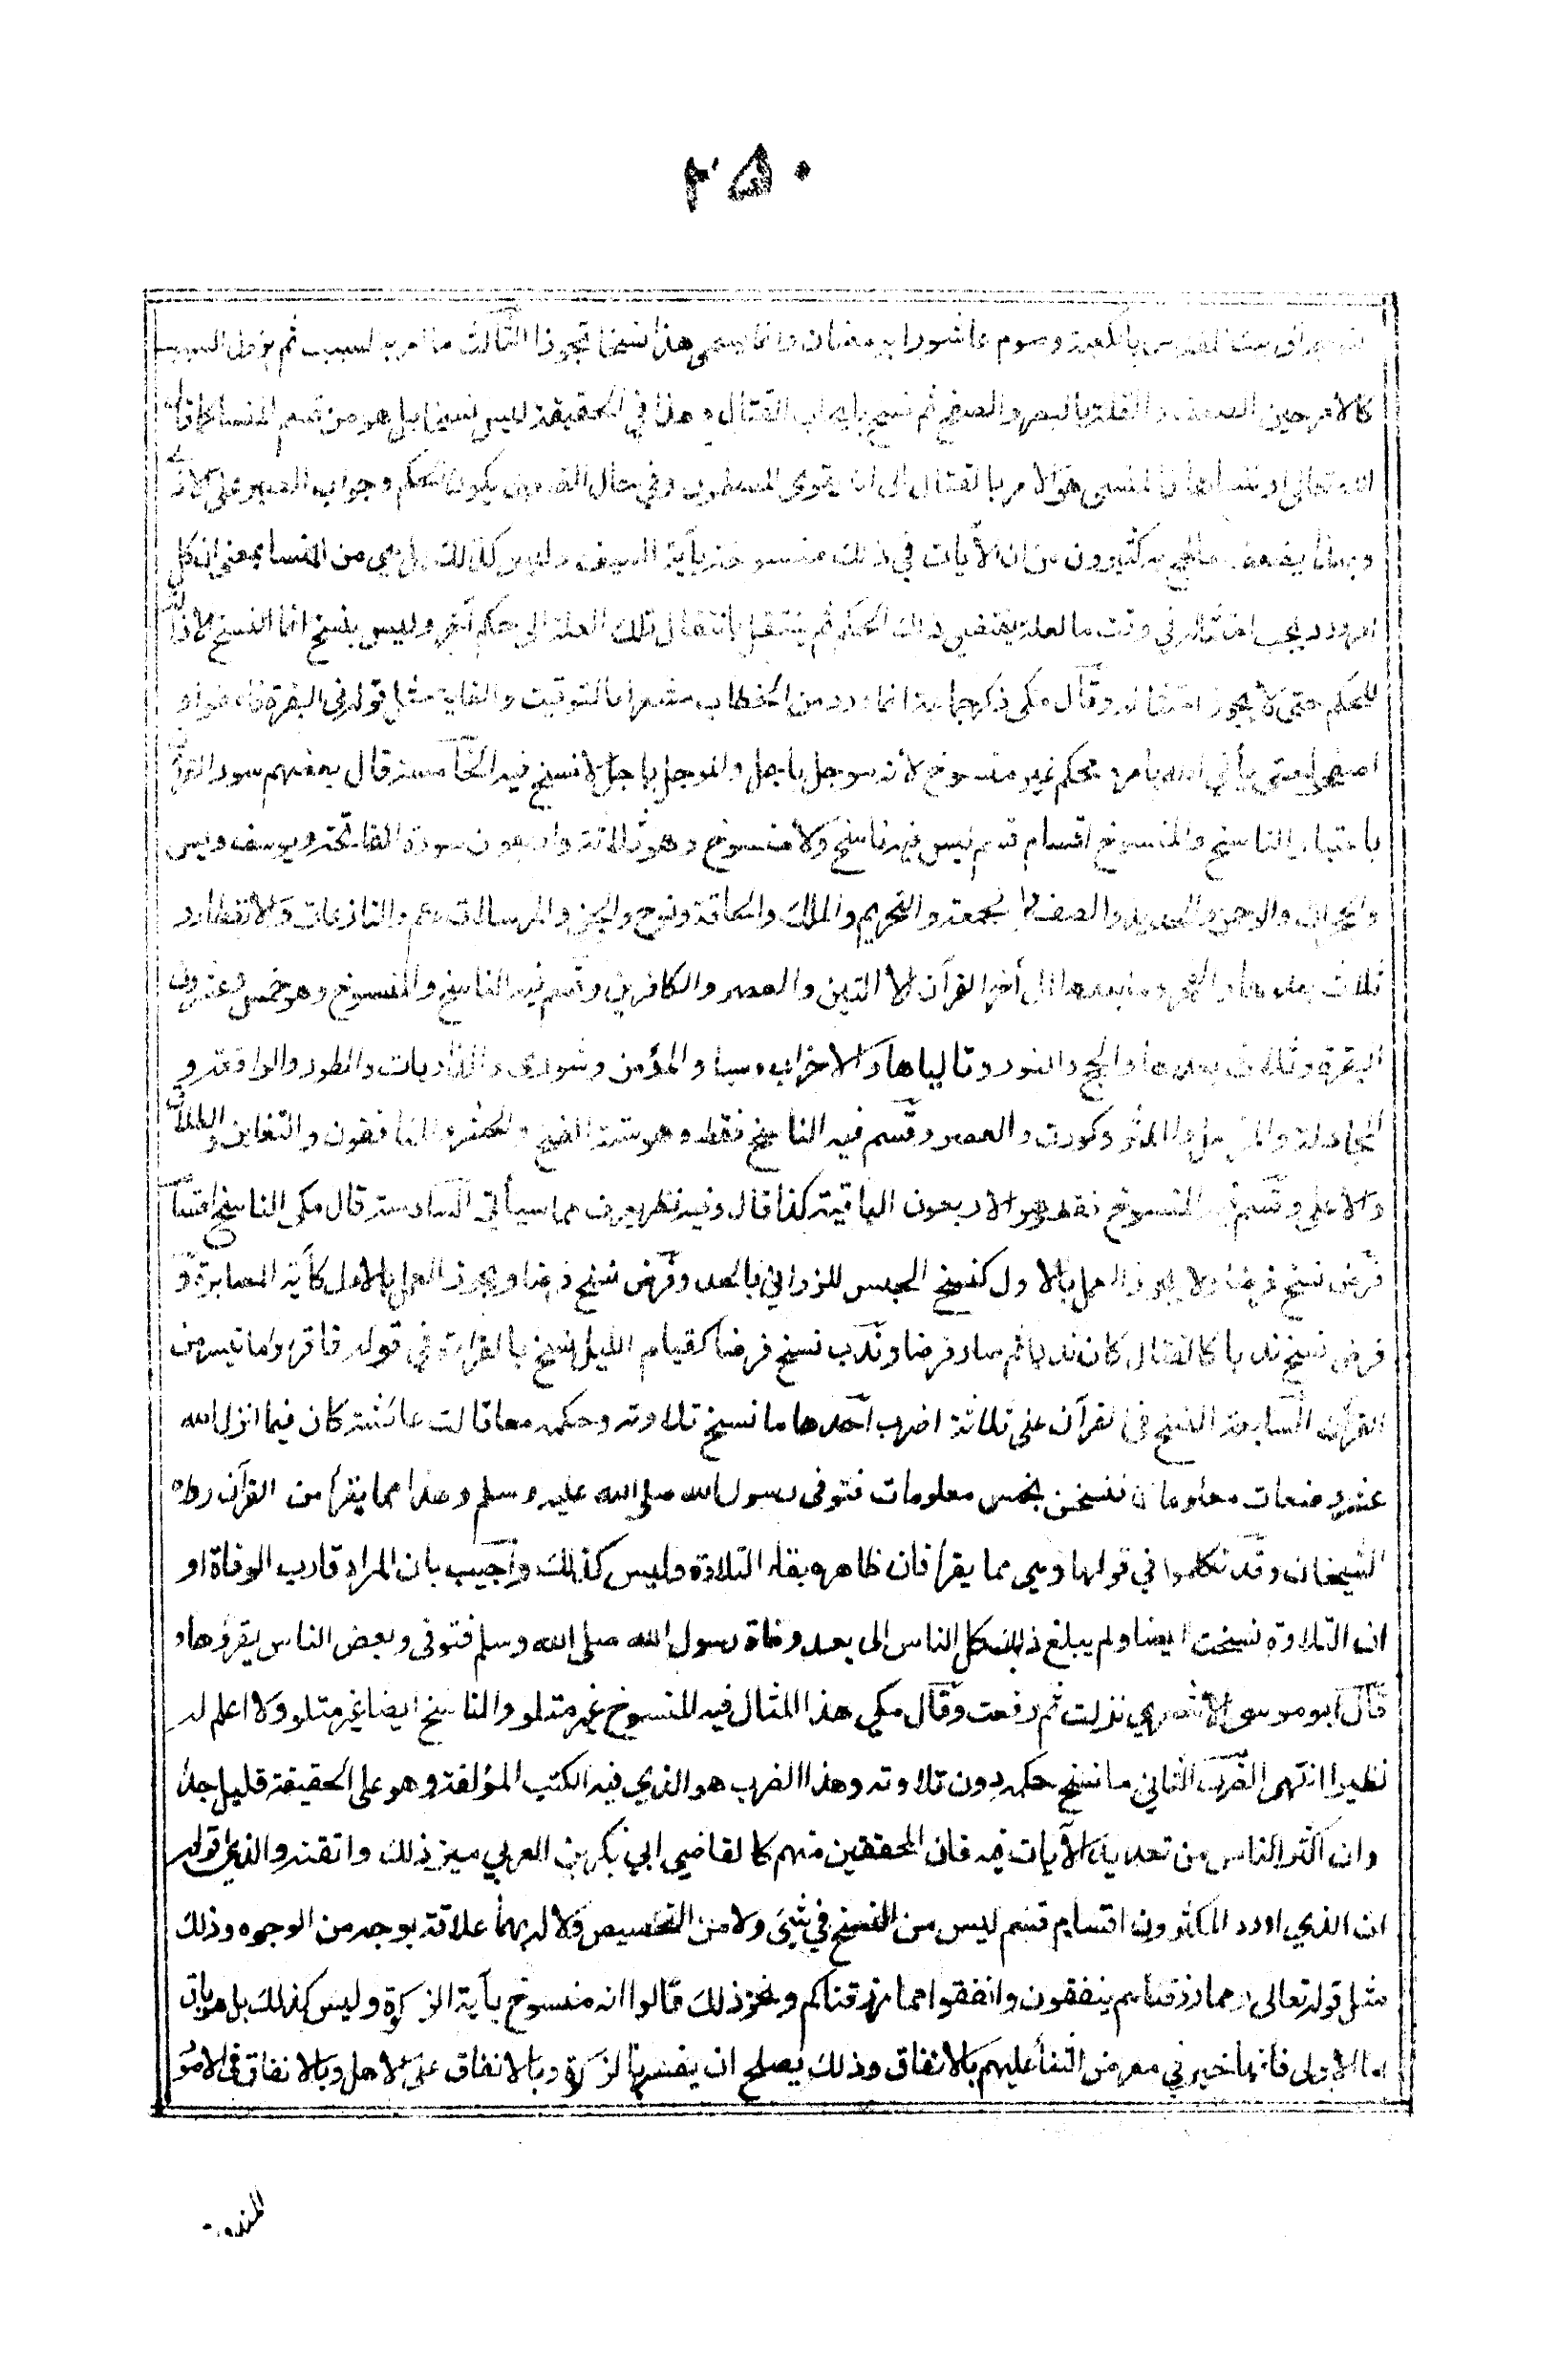 ٢٥٠
بيت المقدس بالكعبة وصوم عاشورا برمضان وانما يسمى هذا نسخا تجوزا الثالث ما امر به لسبب ثم يزول السبب
كالامر حين الضعف والقلة بالصبر والصفح ثم نسخ بايجاب القتال وهذا في الحقيقة ليس نسخا بل هو من قسم المنسا كما قال
الله تعالى او ننسأها فالمنسى هو الامر بالقتال الى ان يقوى المسلمون وفي حال الضعف يكون الحكم وجواب الصبر على الاذى
وبهذا يضعف ما لهج به كثيرون من ان الآيات في ذلك منسوخة بآية السيف وليس كذلك بل هي من المنسا بمعنى ان كل
امر ورد يجب امتثاله في وقت ما لعلة يقتضى ذلك الحكم ثم ينتقل بانتقال تلك العلة الى حكم آخر وليس بنسخ انما النسخ الازالة
للحكم حتى لا يجوز امتثاله وقال مكى ذكر جماعة ان ما ورد من الخطاب مشعرا بالتوقيت والغاية مثل قوله في البقرة فاعفوا و
اصفحوا حتى يأتي الله بامره محكم غير منسوخ لانه موجل باجل والموجل باجل لا نسخ فيه الخامسة قال بعضهم سور القرآن
باعتبار الناسخ والمنسوخ اقسام قسم ليس فيه ناسخ ولا منسوخ وهو ثلاثة واربعون سورة الفاتحة ويوسف ويس
والحجرات والرحمن والحديد والصف والجمعة والتحريم والملك والحاقة ونوح والجن والمرسلات وعم والنازعات والانفطار و
ثلاث بعدها والفجر وما بعدها الى آخر القرآن الا التين والعصر والكافرين وقسم فيه الناسخ والمنسوخ وهو خمس وعشرون
البقرة وثلاث بعدها والحج والنور وتالياها والاحزاب وسبا والمؤمن وشورى والذاريات والطور والواقعة و
المجادلة والمزمل والمدثر وكورت والعصر وقسم فيه الناسخ فقط وهو ستة الفتح والحشر والمنافقون والتغابن والطلاق
والاعلى وقسم فيه المنسوخ فقط وهو الاربعون الباقية كذا قال وفيه نظر يعرف مما سيأتي السادسة قال مكى الناسخ اقسام
فرض نسخ فرضا ولا يجوز العمل بالاول كنسخ الحبس للزواني بالحد وفرض نسخ فرضا ويجوز العمل بالاول كآية المصابرة و
فرض نسخ ندبا كالقتال كان ندبا ثم صار فرضا وندب نسخ فرضا كقيام الليل نسخ بالقراءة في قوله فاقرءوا ما تيسر من
القرآن السابعة النسخ في القرآن على ثلاثة اضرب احدها ما نسخ تلاوته وحكمه معا قالت عائشة كان فيما انزل الله
عشر رضعات معلومات فنسخن بخمس معلومات فتوفى رسول الله صلى الله عليه وسلم وهذا مما يقرأ من القرآن رواه
الشيخان وقد تكلموا في قولها وهي مما يقرأ فان ظاهره بقاء التلاوة وليس كذلك واجيب بان المراد قارب الوفاة او
ان التلاوة نسخت ايضا ولم يبلغ ذلك كل الناس الى بعد وفاة رسول الله صلى الله وسلم فتوفى وبعض الناس يقرؤها و
قال ابو موسى الاشعري نزلت ثم رفعت وقال مكي هذا المثال فيه المنسوخ غير متلو والناسخ ايضا غير متلو ولا اعلم له
نظيرا انتهى الضرب الثاني ما نسخ حكمه دون تلاوته وهذا الضرب هو الذي فيه الكتب المؤلفة وهو على الحقيقة قليل جدا
وان اكثر الناس من تعديد الآيات فيه فان المحققين منهم كالقاضي ابي بكر بن العربي ميز ذلك واتقنه والذي اقوله
ان الذي اورد المكثرون اقسام قسم ليس من النسخ في شيئ ولا من التخصيص ولا له بهما علاقة بوجه من الوجوه وذلك
مثل قوله تعالى ومما رزقناهم ينفقون وانفقوا مما رزقناكم ونحو ذلك قالوا انه منسوخ بآية الزكوة وليس كذلك بل هو باق
اما الاولى فانها خبر في معرض الثنأ عليهم بالانفاق وذلك يصلح ان يفسر بالزكوة وبالانفاق على الاهل وبالانفاق في الامو
المندوبة